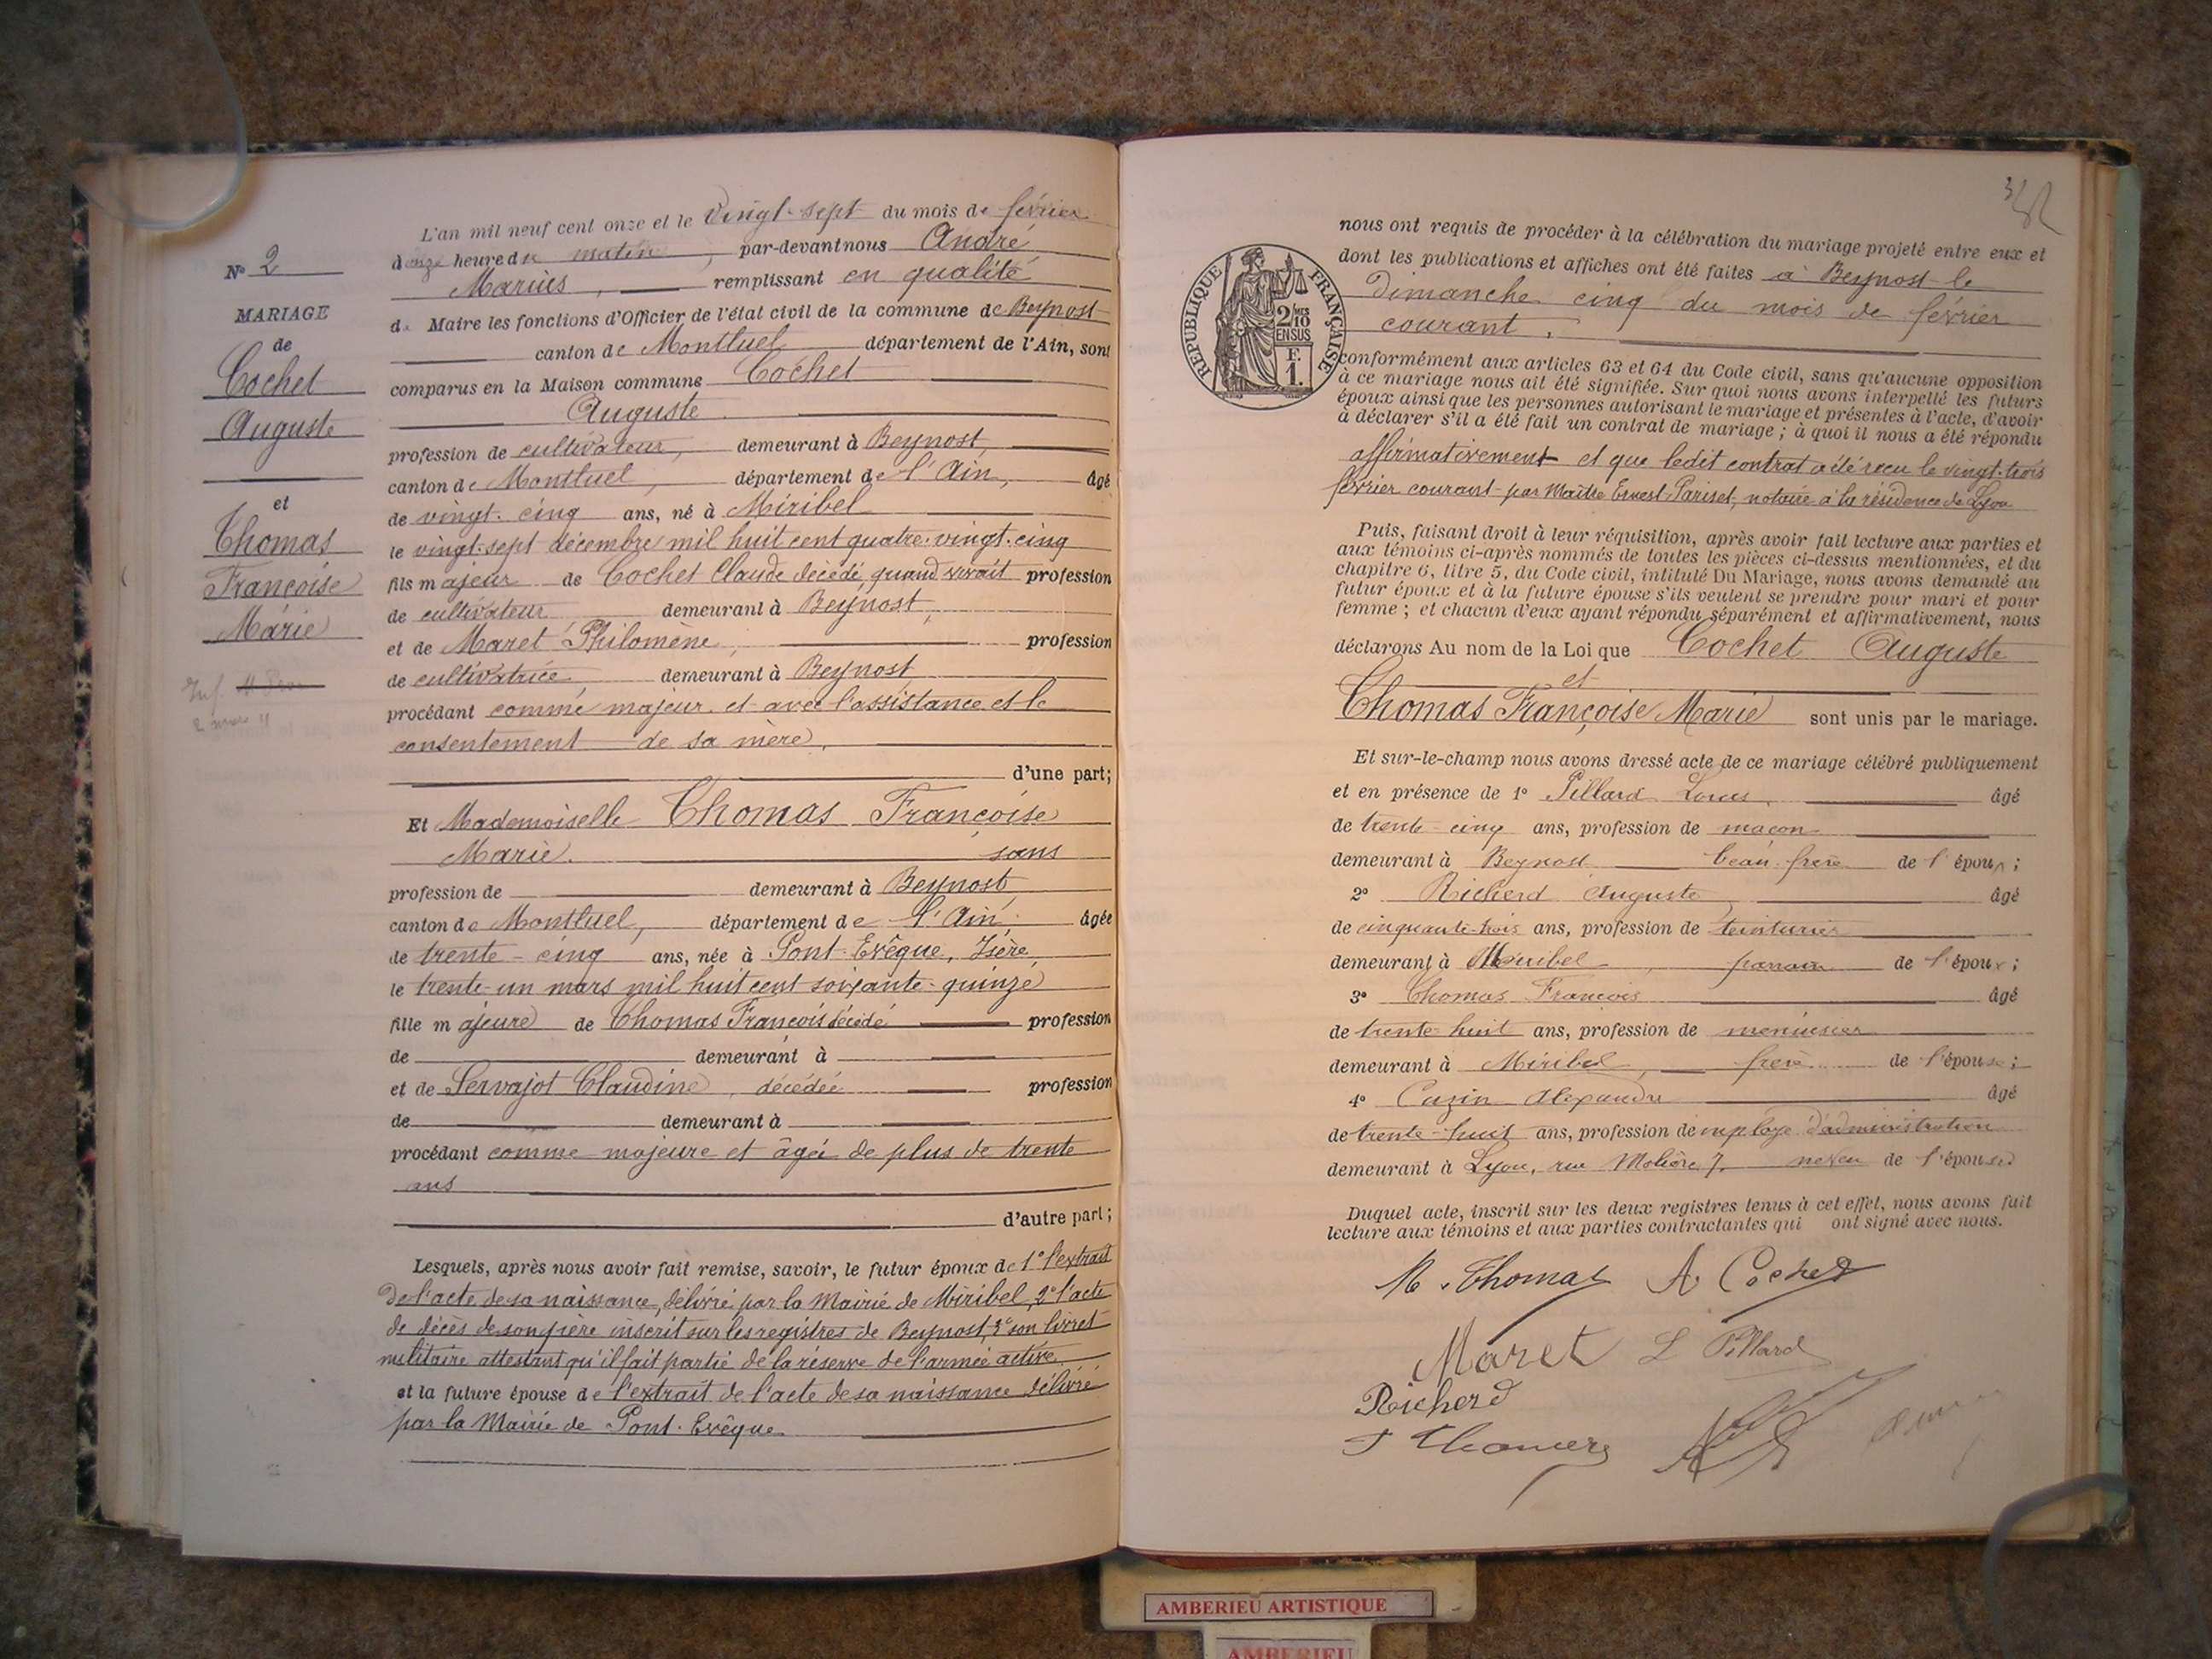 L'an mil neuf cent onze et le vingt-sept du mois de février
N° 2
d onze heure du matin, par-devant nous André
Marius, remplissant en qualité
MARIAGE
de Maire les fonctions d'Officier de l'état civil de la commune de Beynost
de
canton de Montluel département de l'Ain, sont
Cochet
comparus en la Maison commune Cochet
Auguste
Auguste
profession de cultivateur, demeurant à Beynost,
canton de Montluel, département de l'Ain, âgé
et
de vingt-cinq ans, né à Miribel
Thomas
le vingt-sept décembre mil huit cent quatre-vingt-cinq
Françoise
fils majeur de Cochet Claude décédé, quand vivait profession
de cultivateur demeurant à Beynost,
Marie
et de Maret Philomène, profession
de cultivatrice, demeurant à Beynost
Inf.
procédant comme majeur et avec l'assistance et le
consentement de sa mère,
d'une part;
Et Mademoiselle Thomas Françoise
Marie. sans
profession de demeurant à Beynost,
canton de Montluel, département de l'Ain, âgée
de trente-cinq ans, née à Pont-Evêque, Isère,
le trente-un mars mil huit cent soixante-quinze
fille majeure de Thomas François décédé profession
de demeurant à
et de Servajot Claudine, décédée profession
de demeurant à
procédant comme majeure et âgée de plus de trente
ans
d'autre part;
Lesquels, après nous avoir fait remise, savoir, le futur époux de 1° l'extrait
de l'acte de sa naissance, délivré par la Mairie de Miribel, 2° l'acte
de décès de son père inscrit sur les registres de Beynost, 3° son livret
militaire attestant qu'il fait partie de la réserve de l'armée active
et la future épouse de l'extrait de l'acte de sa naissance délivré
par la Mairie de Pont-Evêque.
nous ont requis de procéder à la célébration du mariage projeté entre eux et
dont les publications et affiches ont été faites à Beynost le
dimanche cinq du mois de février
courant,
RÉPUBLIQUE FRANÇAISE
2/10 MES
EN SUS
F.
1.
conformément aux articles 63 et 64 du Code civil, sans qu'aucune opposition
à ce mariage nous ait été signifiée. Sur quoi nous avons interpellé les futurs
époux ainsi que les personnes autorisant le mariage et présentes à l'acte, d'avoir
à déclarer s'il a été fait un contrat de mariage; à quoi il nous a été répondu
affirmativement et que ledit contrat a été reçu le vingt-trois
février courant par Maître Ernest Pariset, notaire à la résidence de Lyon
Puis, faisant droit à leur réquisition, après avoir fait lecture aux parties et
aux témoins ci-après nommés de toutes les pièces ci-dessus mentionnées, et du
chapitre 6, titre 5, du Code civil, intitulé Du Mariage, nous avons demandé au
futur époux et à la future épouse s'ils veulent se prendre pour mari et pour
femme; et chacun d'eux ayant répondu séparément et affirmativement, nous
déclarons Au nom de la Loi que Cochet Auguste
et
Thomas Françoise Marie sont unis par le mariage.
Et sur-le-champ nous avons dressé acte de ce mariage célébré publiquement
et en présence de 1° Pillard Louis, âgé
de trente-cinq ans, profession de maçon
demeurant à Beynost beau-frère de l'époux;
2° Richerd Auguste, âgé
de cinquante-trois ans, profession de teinturier
demeurant à Miribel, parrain de l'époux;
3° Thomas François âgé
de trente-huit ans, profession de menuisier
demeurant à Miribel, frère de l'épouse;
4° Cazin Alexandre âgé
de trente-huit ans, profession de employé d'administration
demeurant à Lyon, rue Molière 7. neveu de l'épouse
Duquel acte, inscrit sur les deux registres tenus à cet effet, nous avons fait
lecture aux témoins et aux parties contractantes qui ont signé avec nous.
M. Thomas A Cochet
Maret L Pillard
Richerd
AMBERIEU ARTISTIQUE
AMBERIEU